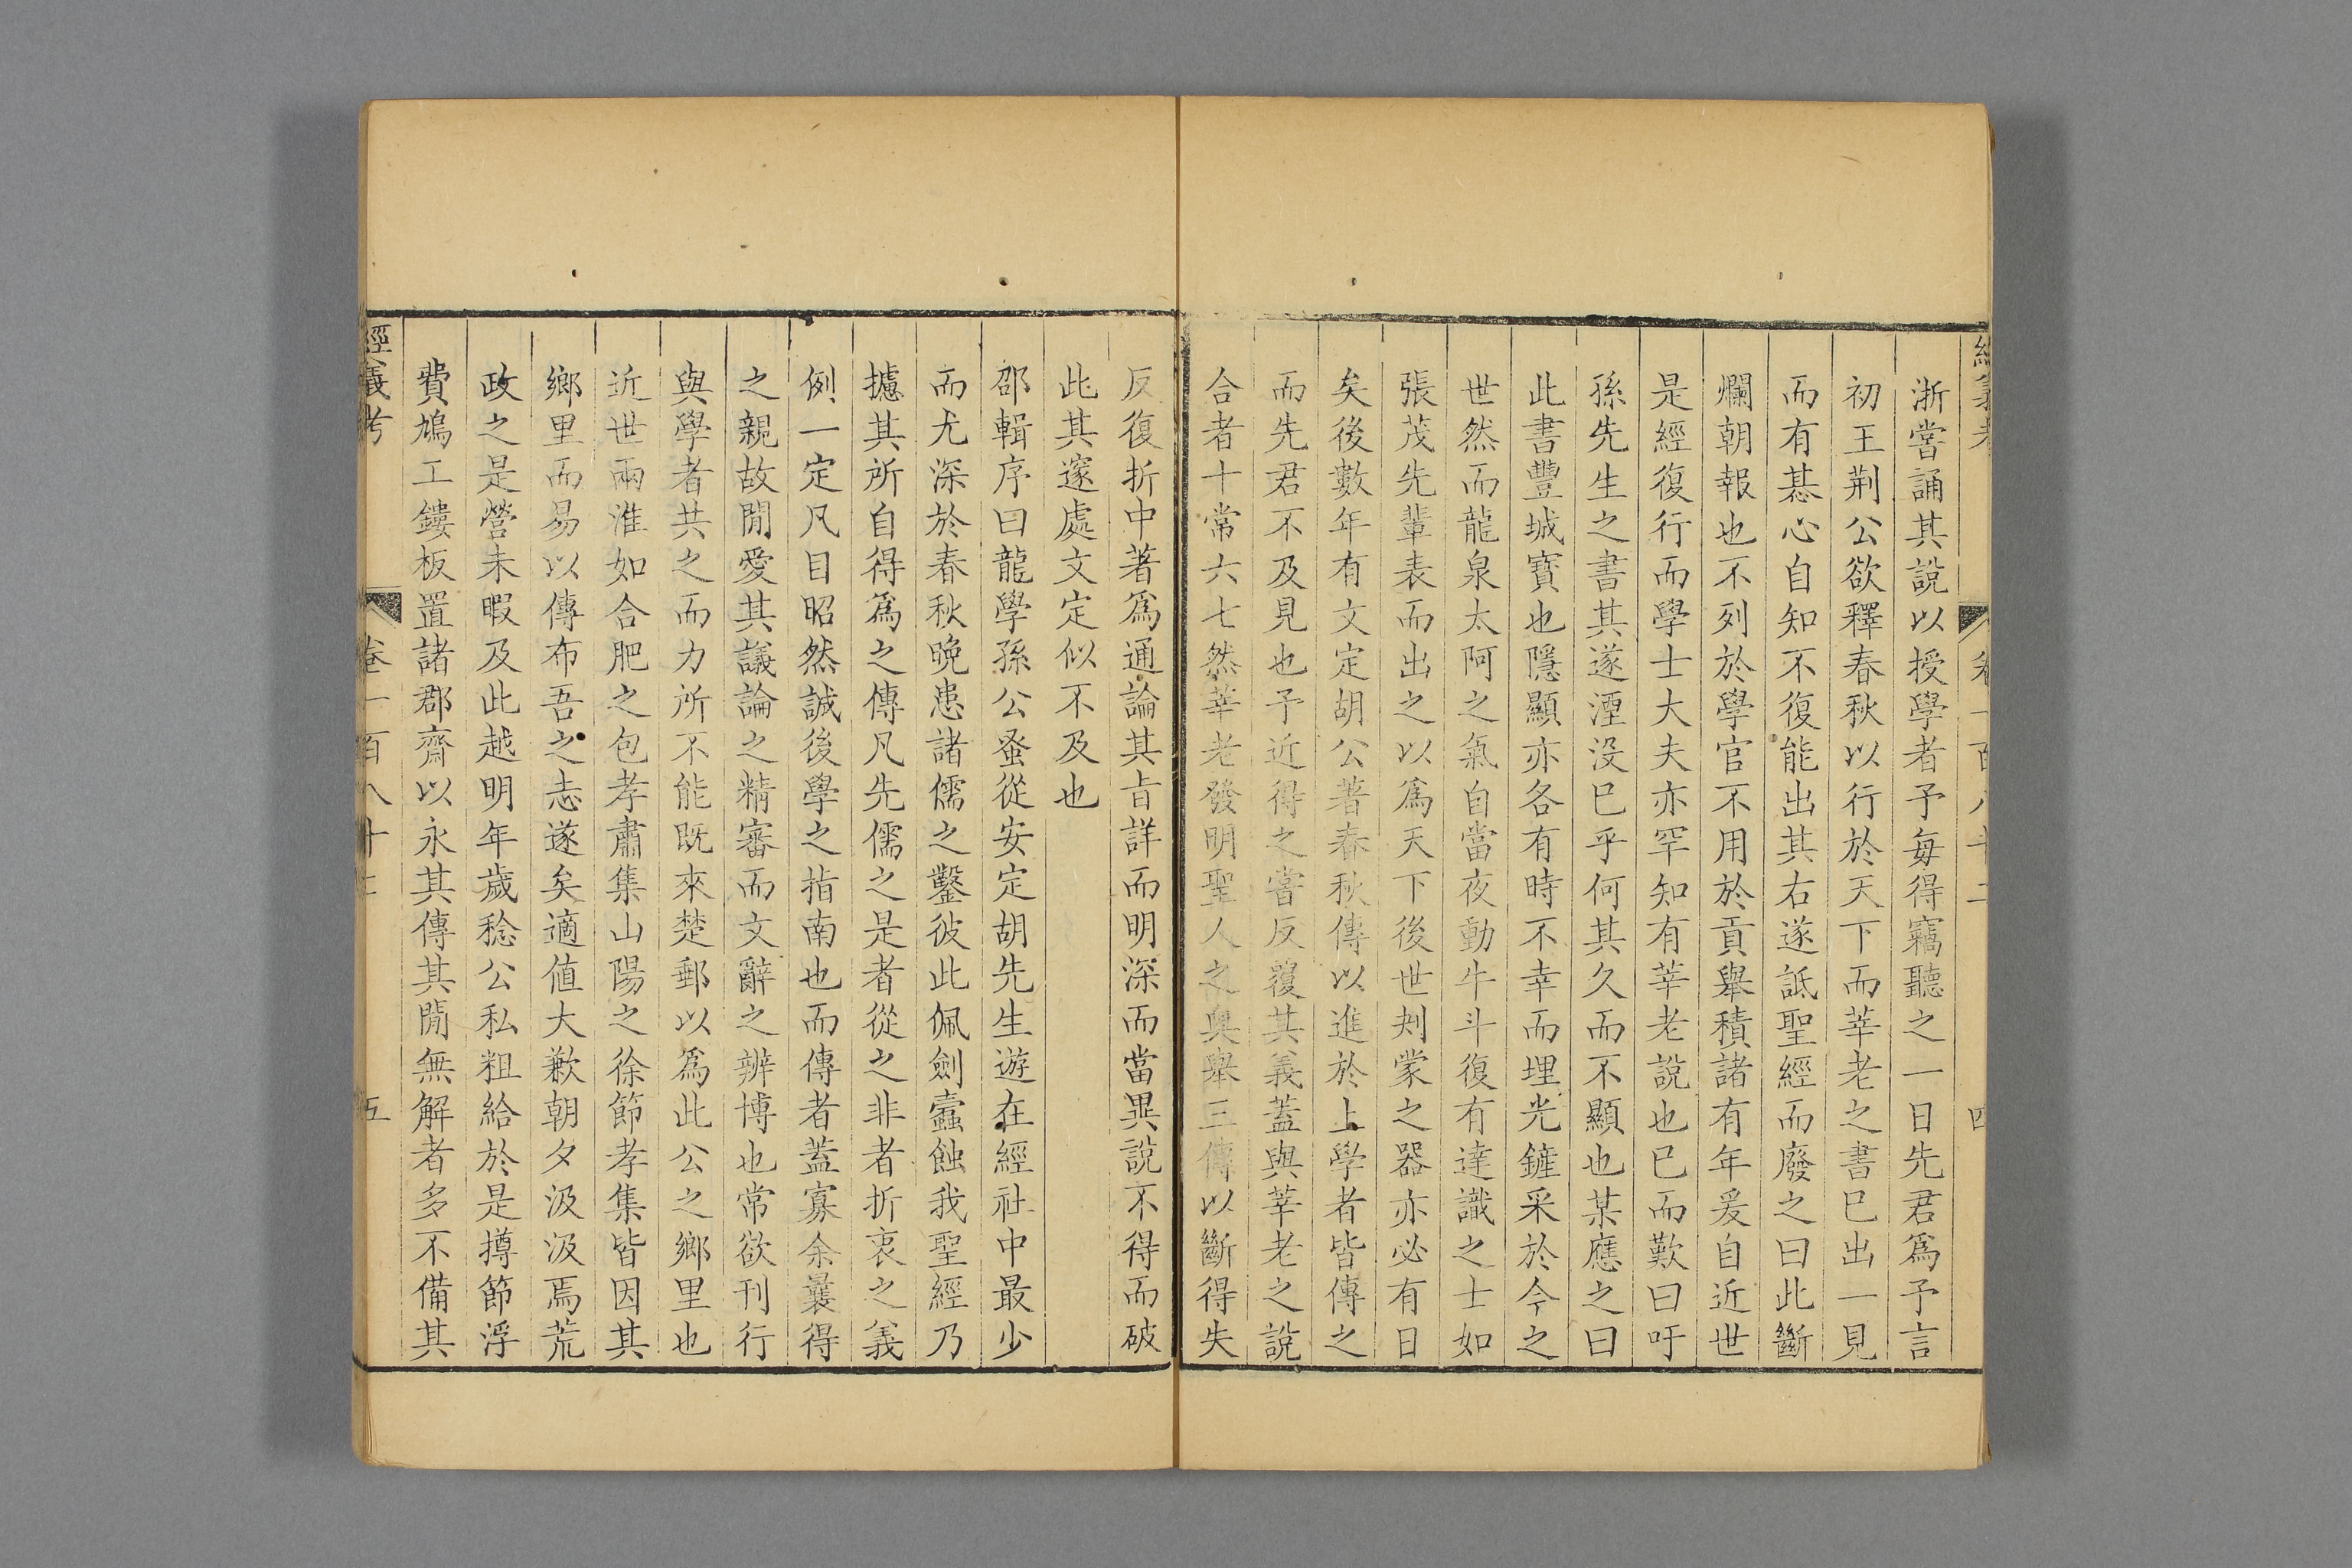 經義考 卷一百八十二 四
浙嘗誦其說以授學者予每得竊聽之一日先君爲予言
初王荆公欲釋春秋以行於天下而莘老之書巳出一見
而有惎心自知不復能出其右遂詆聖經而廢之曰此斷
爛朝報也不列於學官不用於貢舉積諸有年爰自近世
是經復行而學士大夫亦罕知有莘老說也巳而歎曰吁
孫先生之書其遂湮没巳乎何其久而不顯也某應之曰
此書豐城寳也隱顯亦各有時不幸而埋光鏟采於今之
世然而龍泉太阿之氣自當夜動牛斗復有達識之士如
張茂先輩表而出之以爲天下後世刔蒙之器亦必有日
矣後數年有文定胡公著春秋傳以進於上學者皆傳之
而先君不及見也予近得之嘗反覆其義蓋與莘老之說
合者十常六七然莘老發明聖人之奥舉三傳以斷得失
反復折中著爲通論其㫖詳而明深而當異說不得而破
此其邃處文定似不及也
邵輯序曰龍學孫公蚤從安定胡先生遊在經社中最少
而尤深於春秋晚患諸儒之鑿彼此佩劍蠧蝕我聖經乃
攄其所自得爲之傳凡先儒之是者從之非者折衷之義
例一定凡目昭然誠後學之指南也而傳者蓋寡余曩得
之親故閒愛其議論之精審而文辭之辨博也常欲刊行
與學者共之而力所不能既來楚郵以爲此公之鄉里也
近世兩淮如合肥之包孝肅集山陽之徐節孝集皆因其
鄉里而易以傳布吾之志遂矣適值大歉朝夕汲汲焉荒
政之是營未暇及此越明年歲稔公私粗給於是撙節浮
費鳩工鏤板置諸郡齋以永其傳其閒無解者多不備其
經義考 卷一百八十二 五